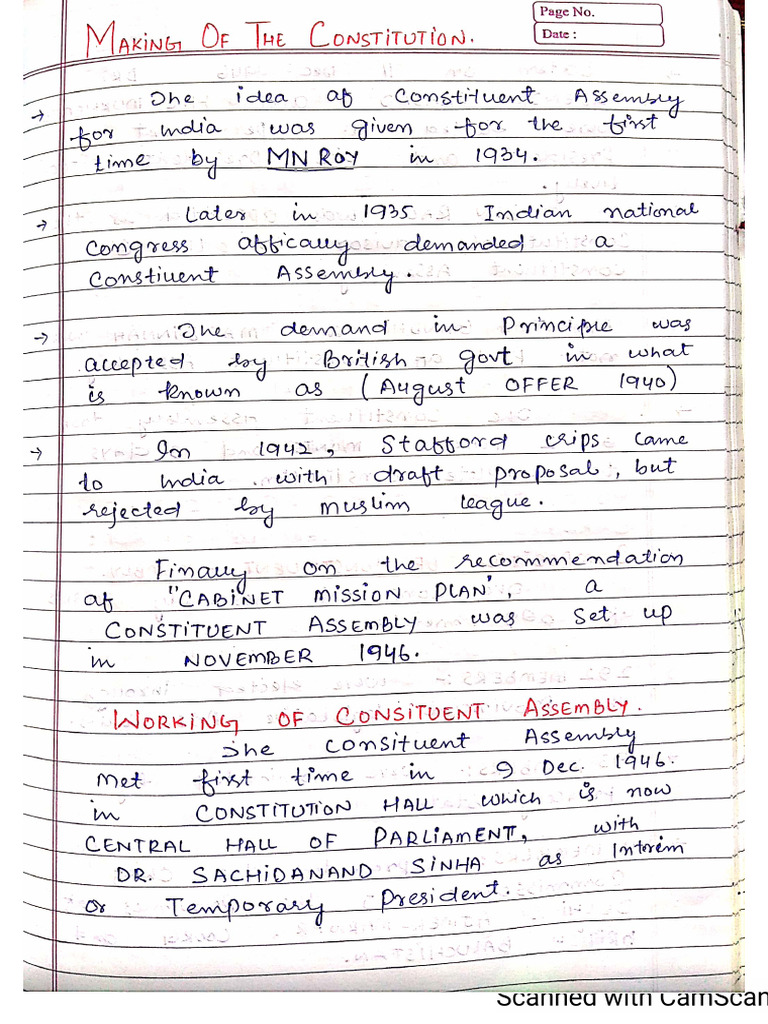 Page No.
Date :
MAKING OF THE CONSTITUTION.
→ The idea of Constituent Assembly
for India was given for the first
time by MN ROY in 1934.
→ Later in 1935 Indian national
Congress officially demanded a
Constiuent Assembly.
→ The demand in Principle was
accepted by British govt in what
is known as (August OFFER 1940)
→ In 1942, Stafford crips came
to India with draft proposal, but
rejected by muslim league.
Finally on the recommendation
of "CABINET Mission PLAN", a
CONSTITUENT ASSEMBLY was set up
in NOVEMBER 1946.
WORKING OF CONSITUENT ASSEMBLY.
The consituent Assembly
met first time in 9 Dec. 1946.
in CONSTITUTION HALL which is now
CENTRAL HALL OF PARLIAMENT, with
DR. SACHIDANAND SINHA as Intrim
or Temporary President.
Scanned with CamScan